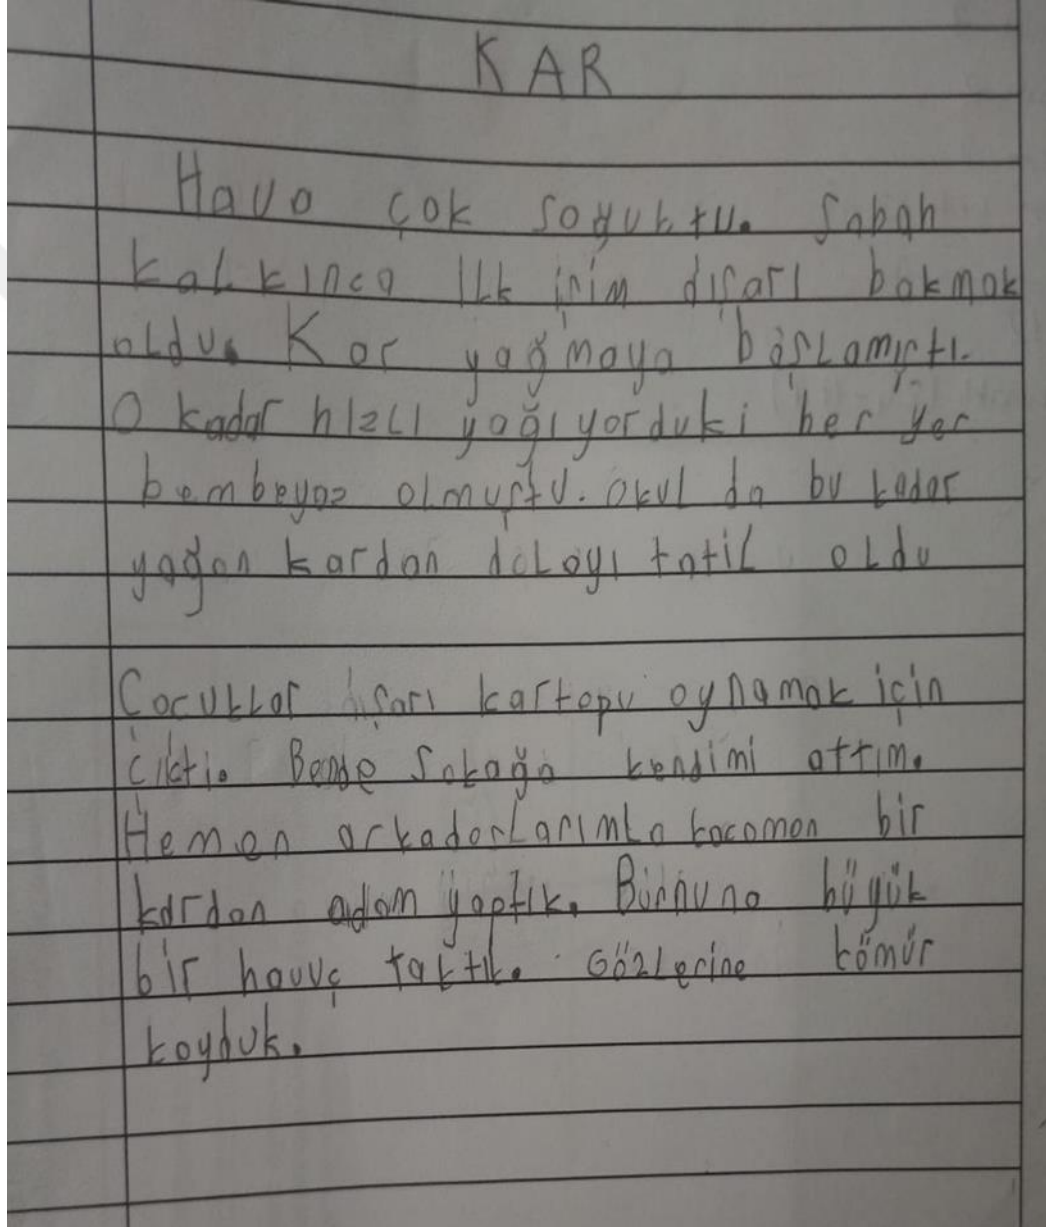 KAR
Hava çok soğuktu. Sabah
kalkınca ilk işim dışarı bakmak
oldu. Kar yağmaya başlamıştı.
O kadar hızlı yağıyorduki her yer
bembeyaz olmuştu. okul da bu kadar
yağan kardan dolayı tatil oldu
Çocuklar dışarı kartopu oynamak için
çıktı. Bende Sokağa kendimi attım.
Hemen arkadaşlarımla kocaman bir
kardan adam yaptık. Burnuna büyük
bir havuç taktık. Gözlerine kömür
koyduk.